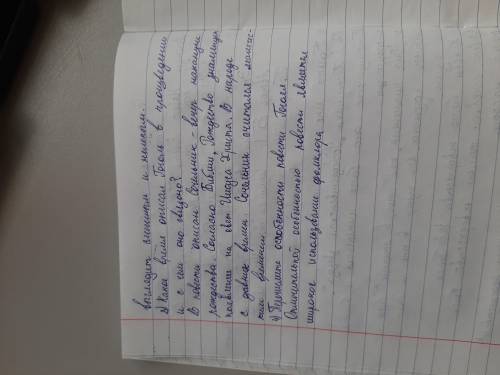 выглядит смешным и нелепым.
2) Какое время описал Гоголь в произведении
и с чем оно связано?
В повести описан Сочельник - вечер накануне
рождества. Согласно Библии, Рождество знаменует
появление на свет Иисуса Христа. В народе
с давних времен Сочельник считался магичес-
ким временем.
Перечислите особенности повести Гоголя.
Отличительной особенностью повести является
широкое использование фольклора.